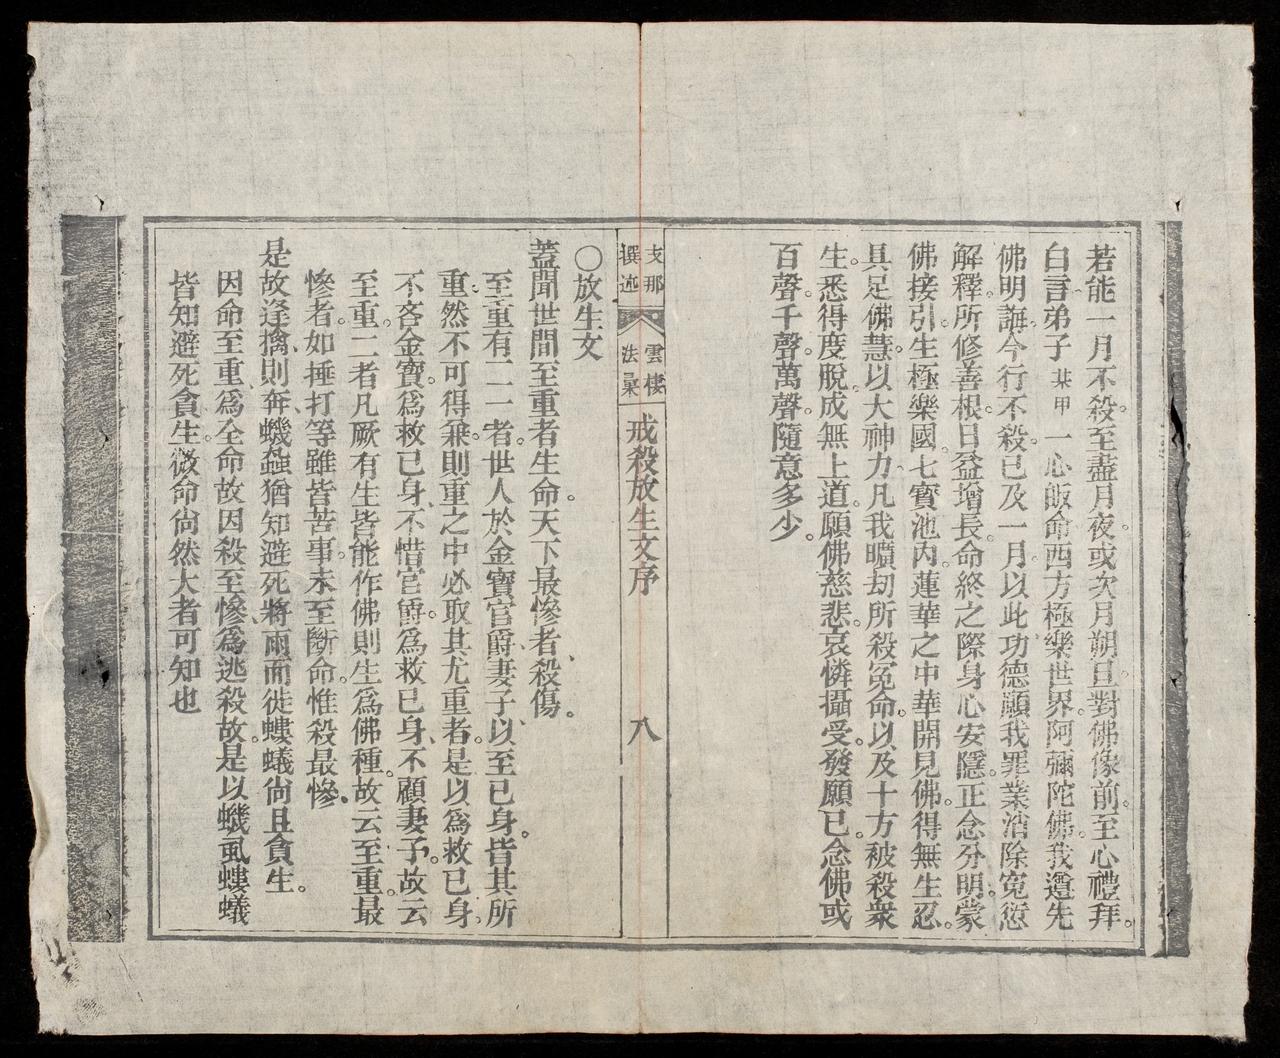 若能一月不殺至盡月夜。或次月朔旦。對佛像前。至心禮拜。
白言弟子某甲一心皈命西方極樂世界。阿彌陀佛。我遵先
佛明誨。今行不殺。已及一月。以此功德。願我罪業消除。冤愆
解釋。所修善根。日益增長。命終之際。身心安隱。正念分明。蒙
佛接引。生極樂國。七寶池內。蓮華之中。華開見佛。得無生忍。
具足佛慧。以大神力。凡我曠劫所殺冤命。以及十方被殺衆
生。悉得度脫。成無上道。願佛慈悲。哀憐攝受。發願已。念佛或
百聲。千聲。萬聲。隨意多少。
支那撰述 雲棲法彙 戒殺放生文序 八
○放生文
蓋聞世間至重者生命。天下最慘者、殺傷。
至重有二一者。世人於金寶官爵、妻子、以至已身。皆其所
重。然不可得兼。則重之中必取其尤重者。是以爲救已身、
不吝金寶。爲救已身、不惜官爵。爲救已身、不顧妻子。故云
至重。二者凡厥有生。皆能作佛。則生爲佛種。故云至重。最
慘者。如捶打等。雖皆苦事。未至斷命。惟殺最慘、
是故逢擒、則奔、蟣蝨猶知避死。將雨而徙、螻蟻尙且貪生。
因命至重、爲全命故。因殺至慘、爲逃殺故。是以蟣虱螻蟻
皆知避死貪生。微命尙然。大者可知也